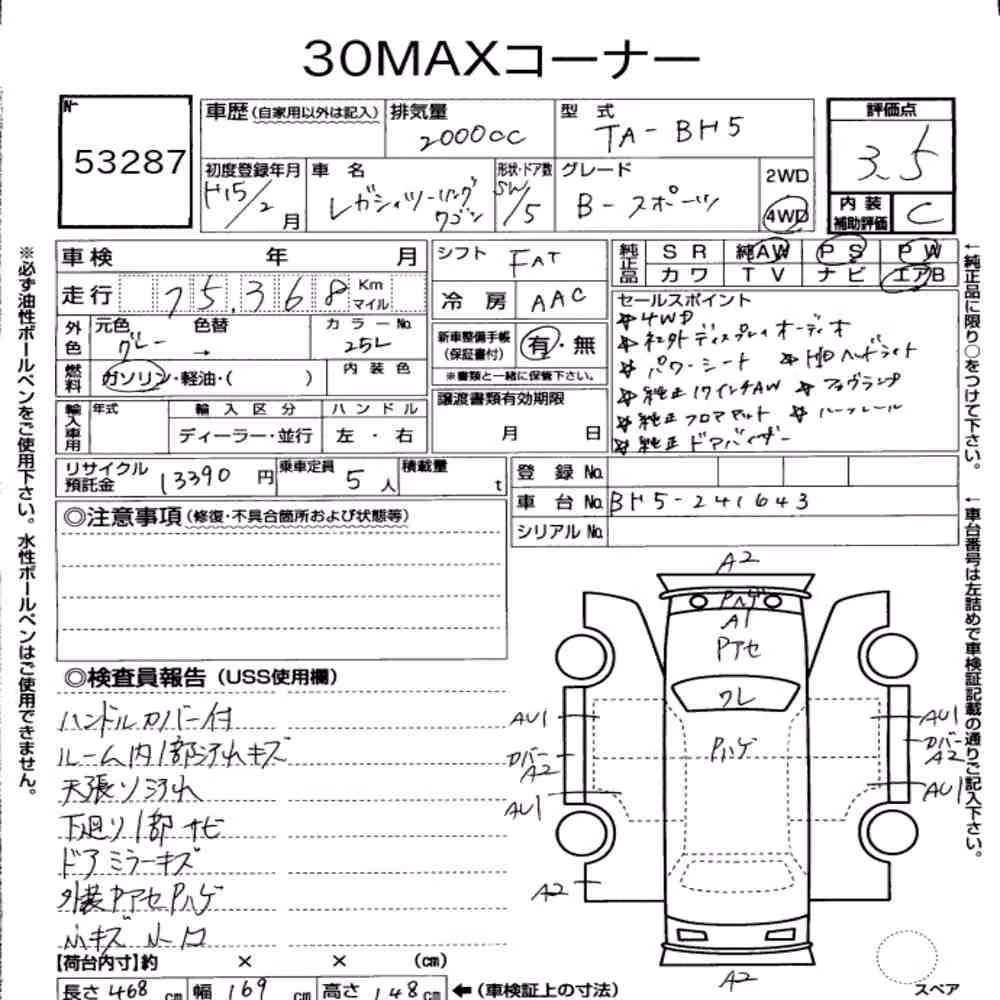 30MAXコーナー
No.
53287
車歴 (自家用以外は記入)
排気量
2000cc
型式
TA-BH5
評価点
3.5
初度登録年月
H15/2月
車名
レガシィツーリング
ワゴン
形状・ドア数
SW/5
グレード
B-スポーツ
2WD
4WD
内装
補助評価
C
車検 年 月
シフト
FAT
純正品
SR 純AW PS PW
カワ TV ナビ エアB
走行 75,368 Km
マイル
冷房 AAC
セールスポイント
☆4WD
☆ 社外ディスプレイオーディオ
☆ パワーシート ☆ HIDヘッドライト
☆ 純正17インチAW ☆ フォグランプ
☆ 純正フロアマット ☆ ルーフレール
☆ 純正ドアバイザー
外色
元色 色替
グレー →
カラーNo.
25L
新車整備手帳
(保証書付)
有・無
※書類と一緒に保管下さい。
燃料
ガソリン・軽油・( )
内装色
譲渡書類有効期限
月 日
輸入車用
年式
輸入区分
ハンドル
ディーラー・並行
左・右
リサイクル
預託金
13390円
乗車定員
5人
積載量
t
登録No.
車台No. BH5-241643
シリアルNo.
◎注意事項 (修復・不具合箇所および状態等)
◎検査員報告 (USS使用欄)
ハンドルカバー付
ルーム内1部汚れキズ
天張り汚れ
下廻り1部サビ
ドアミラーキズ
外装PアセPハゲ
小キズ 小凹
【荷台内寸】約 × × (cm)
長さ 468 cm 幅 169 cm 高さ 148 cm ←(車検証上の寸法)
A2
Pハゲ
A1
Pアセ
ワレ
Pハゲ
AU1
カバー
A2
AU1
A2
AU1
カバー
A2
AU1
A2
スペア
※必ず油性ボールペンをご使用下さい。水性ボールペンはご使用できません。
←純正品に限り○をつけて下さい。
←車台番号は左詰めで車検証記載の通りご記入下さい。